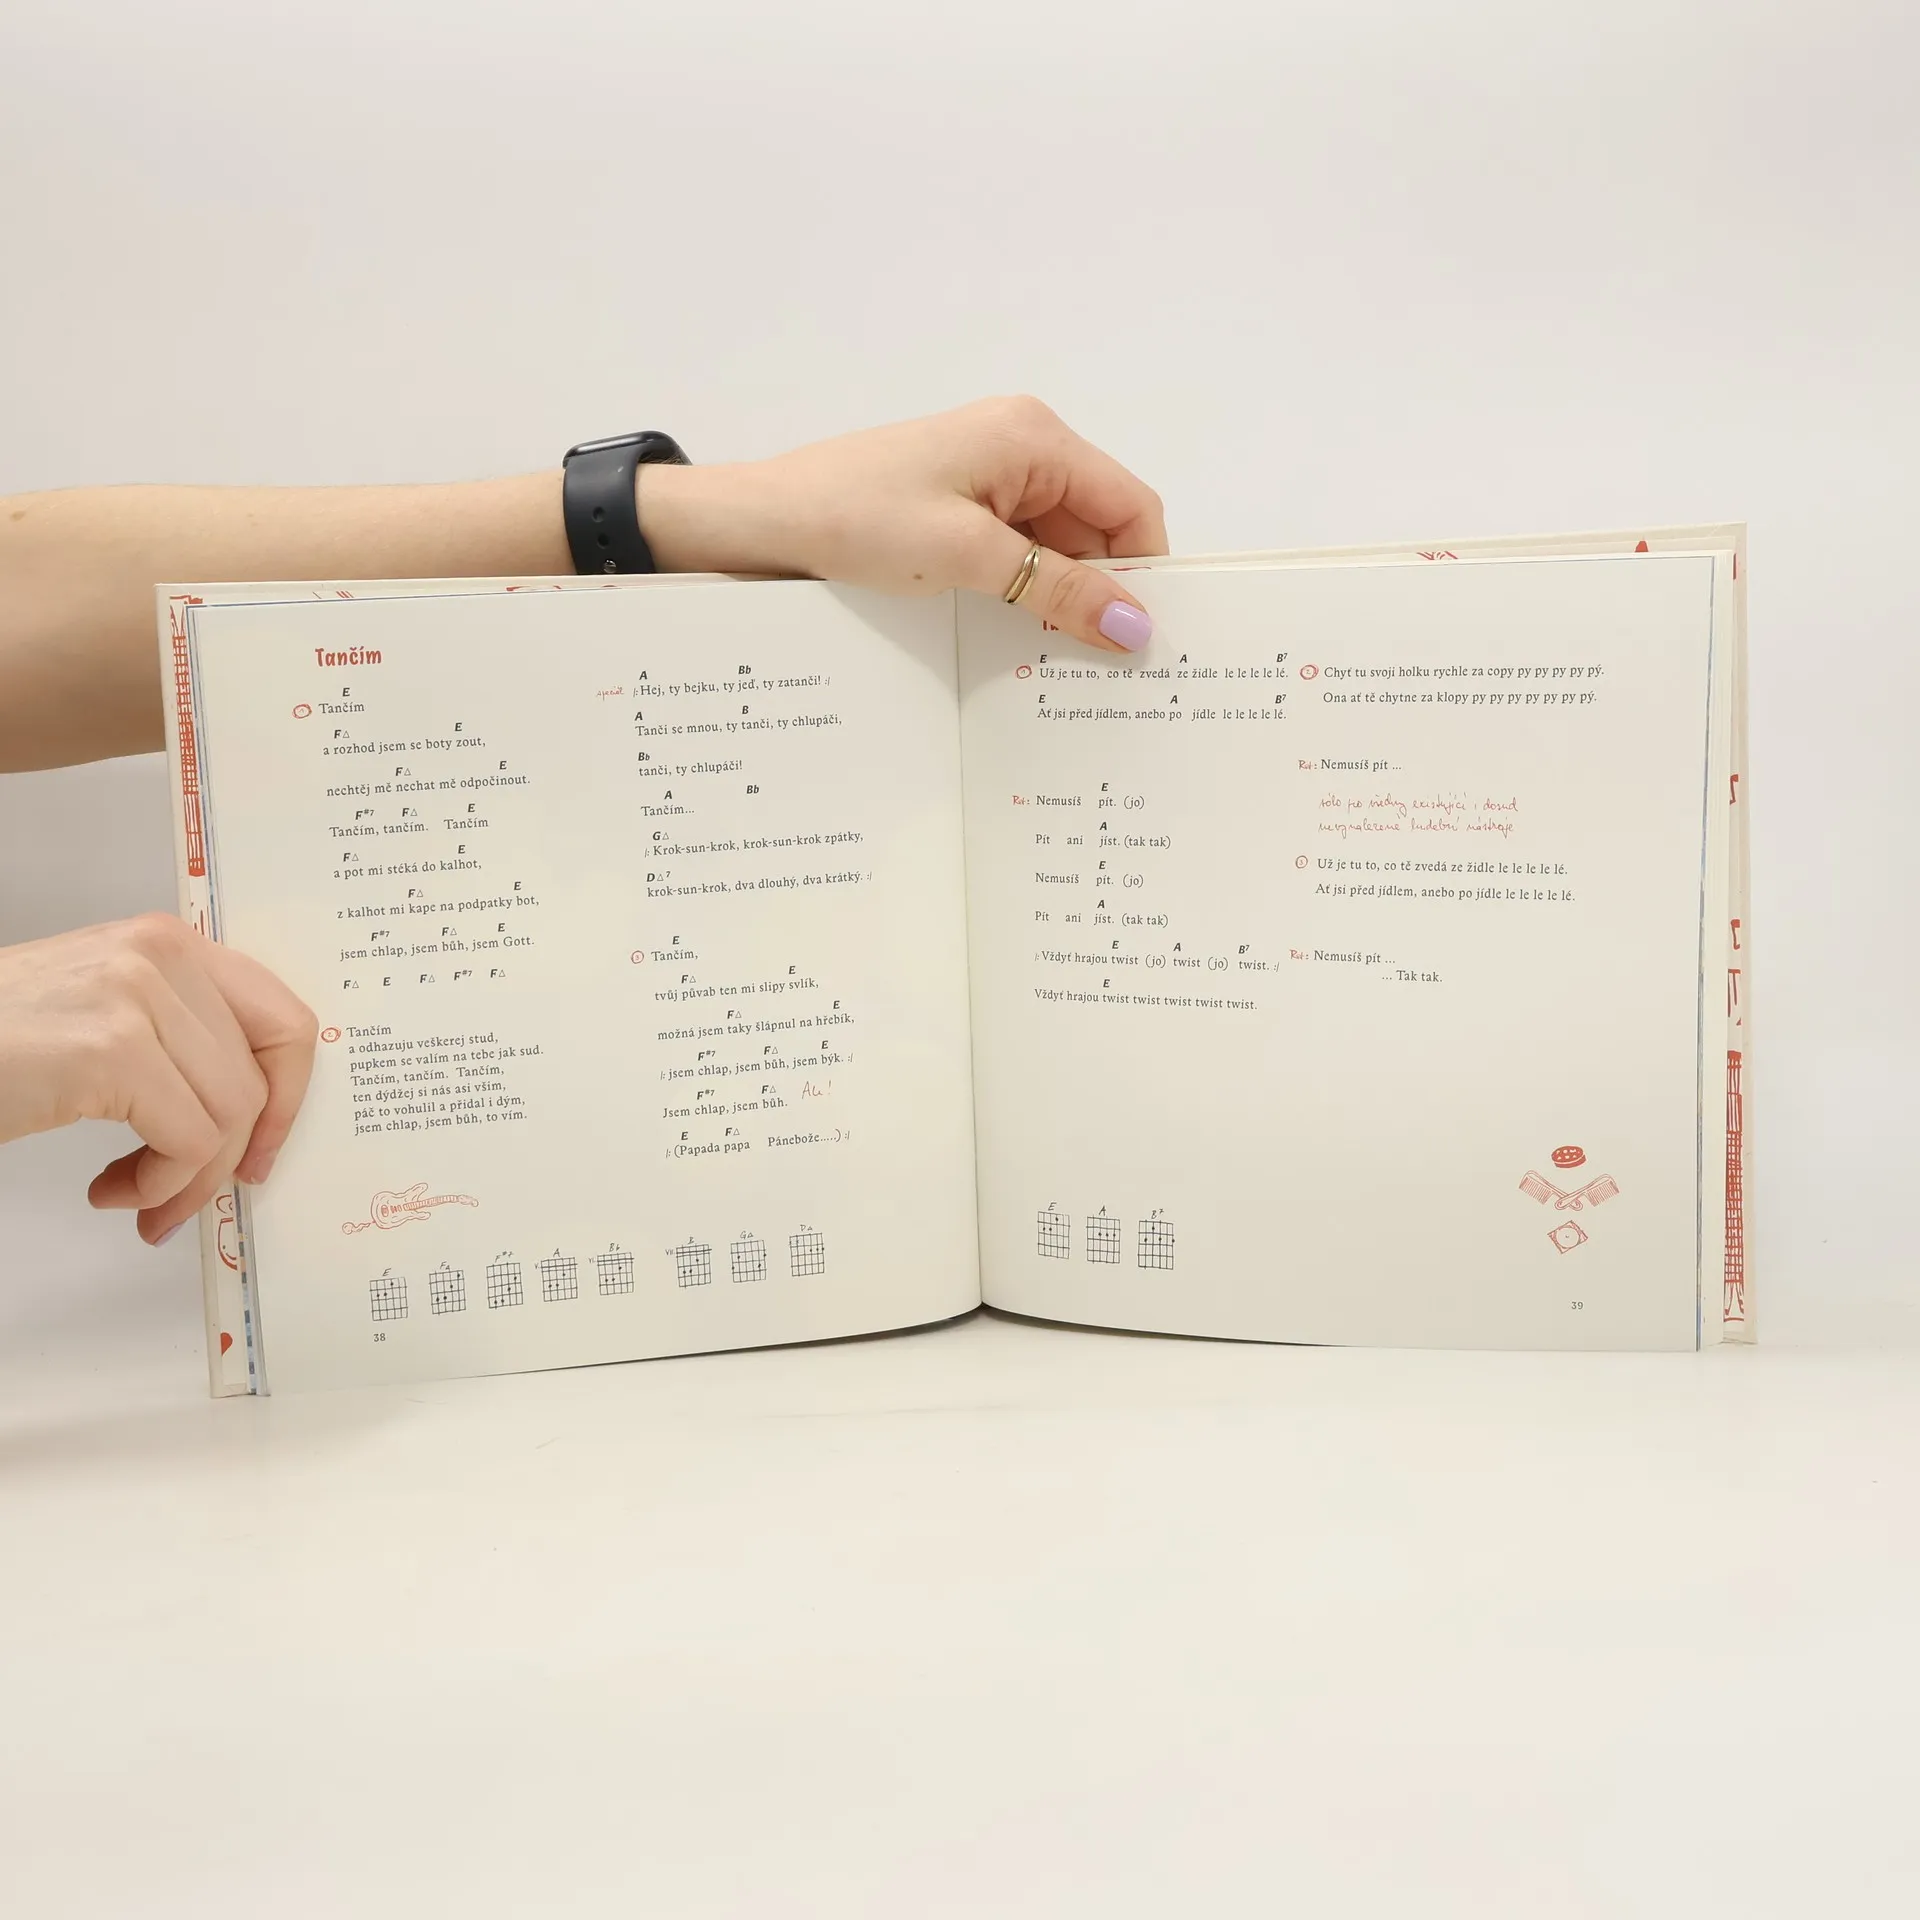 Tančím
E
1 Tančím
F△ E
a rozhod jsem se boty zout,
F△ E
nechtěj mě nechat mě odpočinout.
F#7 F△ E
Tančím, tančím. Tančím
F△ E
a pot mi stéká do kalhot,
F△ E
z kalhot mi kape na podpatky bot,
F#7 F△ E
jsem chlap, jsem bůh, jsem Gott.
F△ E F△ F#7 F△
2 Tančím
a odhazuju veškerej stud,
pupkem se valím na tebe jak sud.
Tančím, tančím. Tančím,
ten dýdžej si nás asi vším,
páč to vohulil a přidal i dým,
jsem chlap, jsem bůh, to vím.
A Bb
speciál /: Hej, ty bejku, ty jeď, ty zatanči! :/
A B
Tanči se mnou, ty tanči, ty chlupáči,
Bb
tanči, ty chlupáči!
A Bb
Tančím...
G△
/: Krok-sun-krok, krok-sun-krok zpátky,
D△7
krok-sun-krok, dva dlouhý, dva krátký. :/
E
3 Tančím,
F△ E
tvůj půvab ten mi slipy svlík,
F△ E
možná jsem taky šlápnul na hřebík,
F#7 F△ E
/: jsem chlap, jsem bůh, jsem býk. :/
F#7 F△
Jsem chlap, jsem bůh.
E F△
/: (Papada papa Pánebože.....) :/
E F△ F#7 A Bb B G△ D△
V. VI. VII
38
E A B7
1 Už je tu to, co tě zvedá ze židle le le le le lé.
E A B7
Ať jsi před jídlem, anebo po jídle le le le le lé.
E
Ref: Nemusíš pít. (jo)
A
Pít ani jíst. (tak tak)
E
Nemusíš pít. (jo)
A
Pít ani jíst. (tak tak)
E A B7
/: Vždyť hrajou twist (jo) twist (jo) twist. :/
E
Vždyť hrajou twist twist twist twist twist.
2 Chyť tu svoji holku rychle za copy py py py py pý.
Ona ať tě chytne za klopy py py py py py py pý.
Ref: Nemusíš pít ...
sólo pro všechny existující i dosud
nevynalezené hudební nástroje
3 Už je tu to, co tě zvedá ze židle le le le le lé.
Ať jsi před jídlem, anebo po jídle le le le le lé.
Ref: Nemusíš pít ...
... Tak tak.
E A B7
39